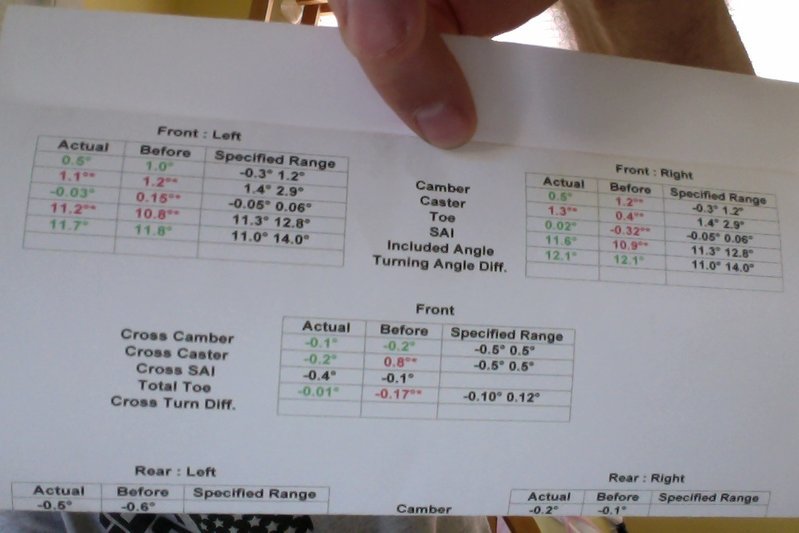 Front : Left
Actual Before Specified Range
0.5° 1.0° -0.3° 1.2°
1.1°* 1.2°* 1.4° 2.9°
-0.03° 0.15°* -0.05° 0.06°
11.2°* 10.8°* 11.3° 12.8°
11.7° 11.8° 11.0° 14.0°
Camber
Caster
Toe
SAI
Included Angle
Turning Angle Diff.
Front : Right
Actual Before Specified Range
0.5° 1.2°* -0.3° 1.2°
1.3°* 0.4°* 1.4° 2.9°
0.02° -0.32°* -0.05° 0.06°
11.6° 10.9°* 11.3° 12.8°
12.1° 12.1° 11.0° 14.0°
Front
Actual Before Specified Range
Cross Camber -0.1° -0.2° -0.5° 0.5°
Cross Caster -0.2° 0.8°* -0.5° 0.5°
Cross SAI -0.4° -0.1°
Total Toe -0.01° -0.17°* -0.10° 0.12°
Cross Turn Diff.
Rear : Left
Actual Before Specified Range
-0.5° -0.6°
Camber
Rear : Right
Actual Before Specified Range
-0.2° -0.1°